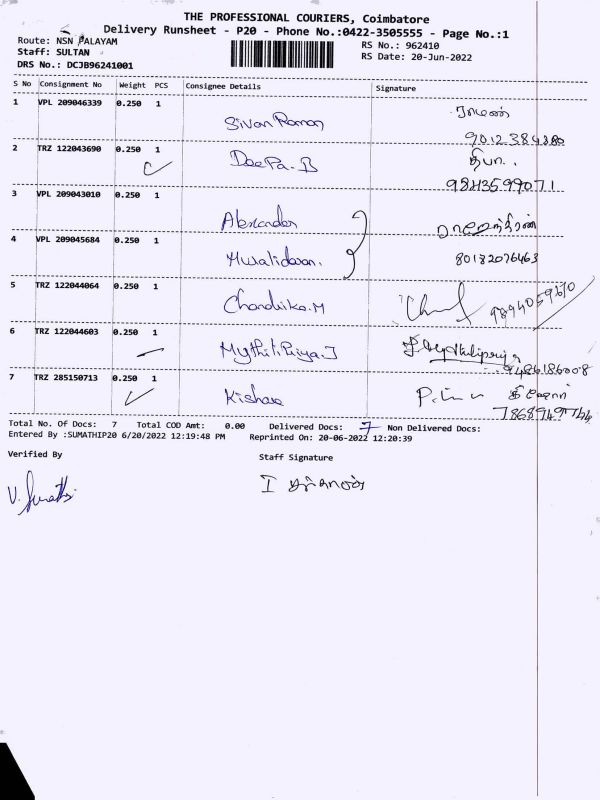 THE PROFESSIONAL COURIERS, Coimbatore
Delivery Runsheet - P20 - Phone No.:0422-3505555 - Page No.:1
Route: NSN PALAYAM
RS No.: 962410
Staff: SULTAN
RS Date: 20-Jun-2022
DRS No.: DCJB96241001
S No Consignment No Weight PCS Consignee Details Signature
1 VPL 209046339 0.250 1
Sivan Raman
2 TRZ 122043690 0.250 1
Deepa. B தீபா..
3 VPL 209043010 0.250 1
Alexander
4 VPL 209045684 0.250 1
Muralidaran. 80132076463
5 TRZ 122044064 0.250 1
Chandrika.M 9894059670
6 TRZ 122044603 0.250 1
Mythili Priya.J
9486186008
7 TRZ 285150713 0.250 1
Kishore
Total No. Of Docs: 7 Total COD Amt: 0.00 Delivered Docs: 7 Non Delivered Docs:
Entered By :SUMATHIP20 6/20/2022 12:19:48 PM Reprinted On: 20-06-2022 12:20:39
Verified By Staff Signature